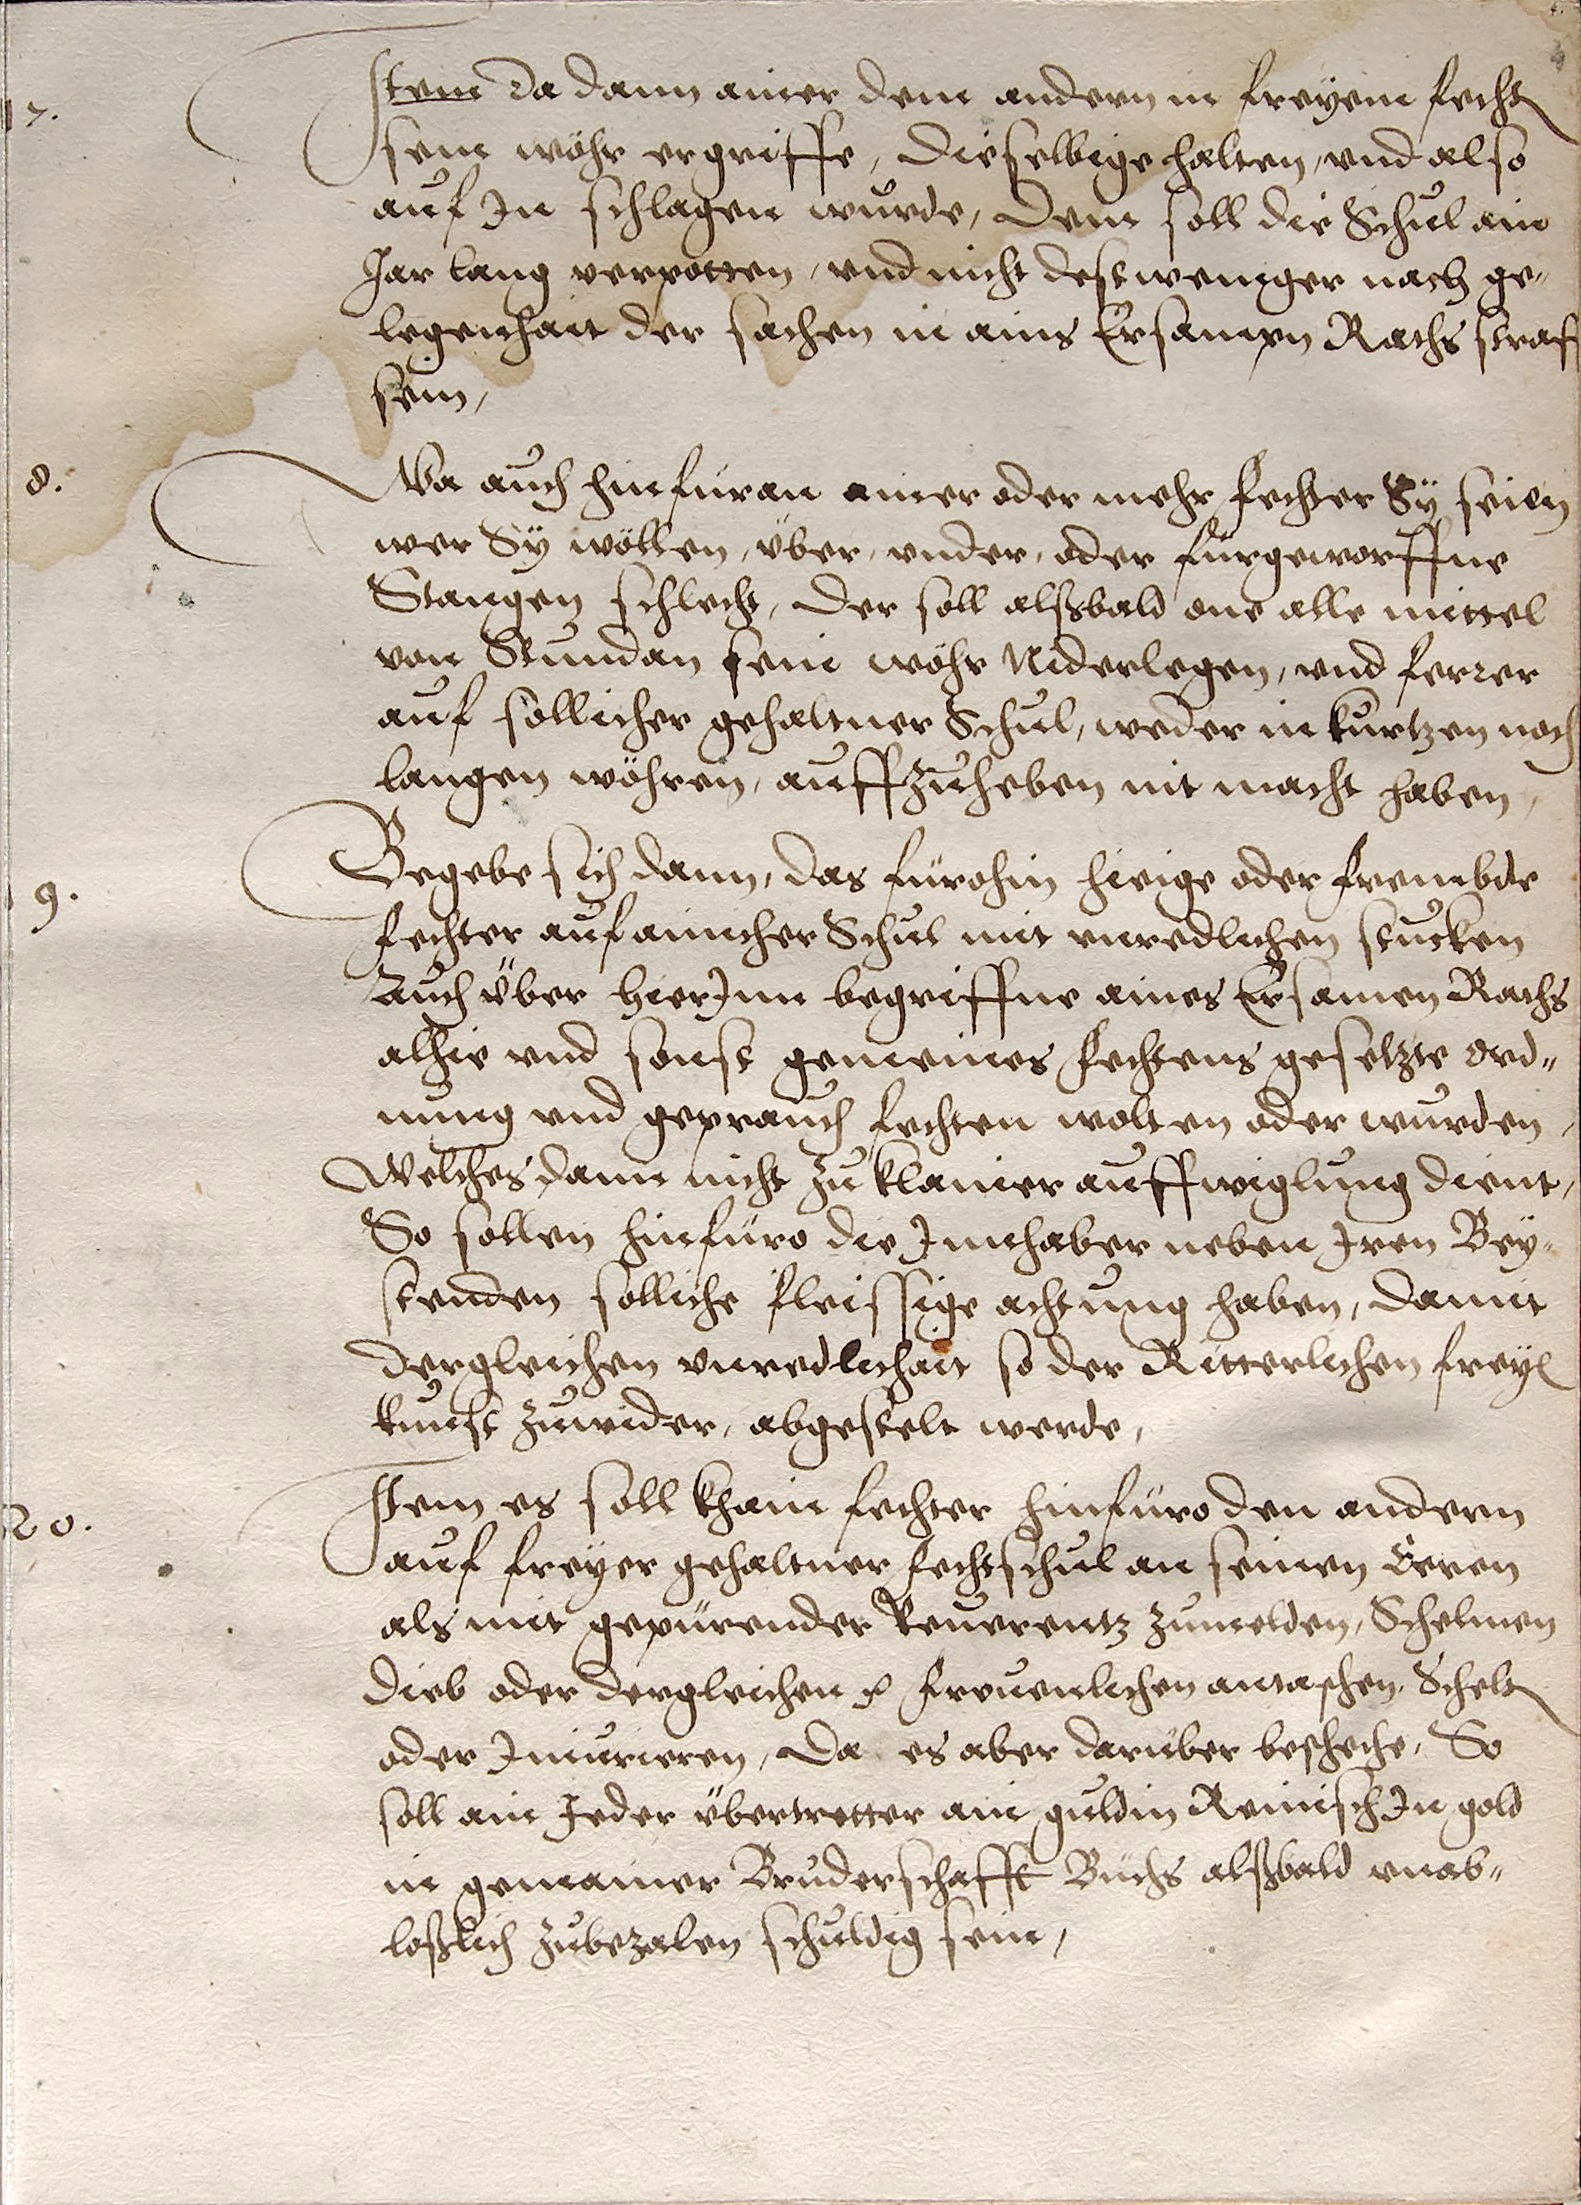 17.
Item da dann ainer dem andern in freyem fecht
sein wöhr ergriffe, dieselbige halten, vnd also
auf In schlagen wurde, dem soll die Schul ain
Jar lang verpotten, vnd nicht destweniger nach ge„
legenhait der sachen in ains Ersamen Raths straf
sein,
8.
Wa auch hinfüran ainer oder mehr fechter Sÿ seien
wer Sÿ wöllen, über, vnder, oder fürgeworffne
Stangen schlecht, der soll alßbald one alle mittel
von Stundan sein wöhr Niderlegen, vnd ferrer
auf söllicher gehaltner Schul, weder in kurtzen noch
langen wöhren, auffzuheben nit macht haben,
9.
Begebe sich dann, das fürohin hieige oder frembde
fechter auf ainicher Schul mit vnredlichen stucken
Auch über hierInn begriffne aines Ersamen Raths
alhie vnd sonst gemeines fechtens gesetzte ord„
nung vnd geprauch fechten wolten oder wurden,
Welches dann nicht zu klainer auffwiglung dient,
So sollen hinfüro die Innhaber neben Iren Bey„
stenden solliche fleissige achtung haben, damit
dergleichen vnredlichait so der Ritterlichen frey
kunst zuwider, abgestelt werde,
20.
Item es soll khain fechter hinfüro den andern
auf freyer gehaltner fechtschul an seinen Eeren
als mit gepürender Reuerentz zumelden, Schelmen
dieb oder dergleichen frevenlichen antaschen, Schelt
oder Iniurieren, Da es aber darüber beschehe, So
soll ain Jeder übertretter ain guldin Reinisch In gold
in gemainer Bruderschafft Büchs alßbald vnab„
loßlich zubezalen schuldig sein,